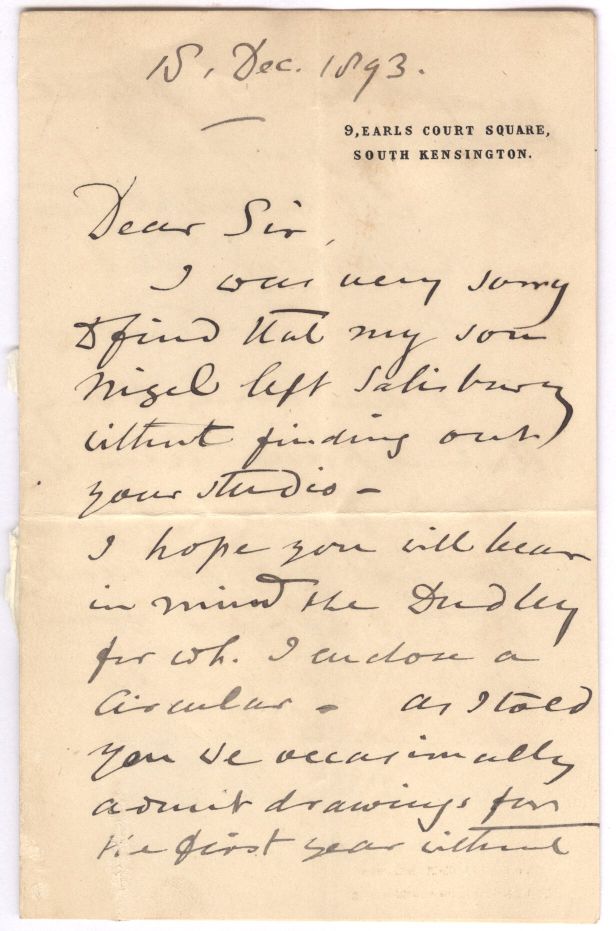 15, Dec. 1893.
9, EARLS COURT SQUARE,
SOUTH KENSINGTON.
Dear Sir,
I was very sorry
to find that my son
Nigel left Salisbury
without finding out
your studio –
I hope you will bear
in mind the Dudley
for wh. I enclose a
Circular – as I told
you we occasionally
admit drawings for
the first year without